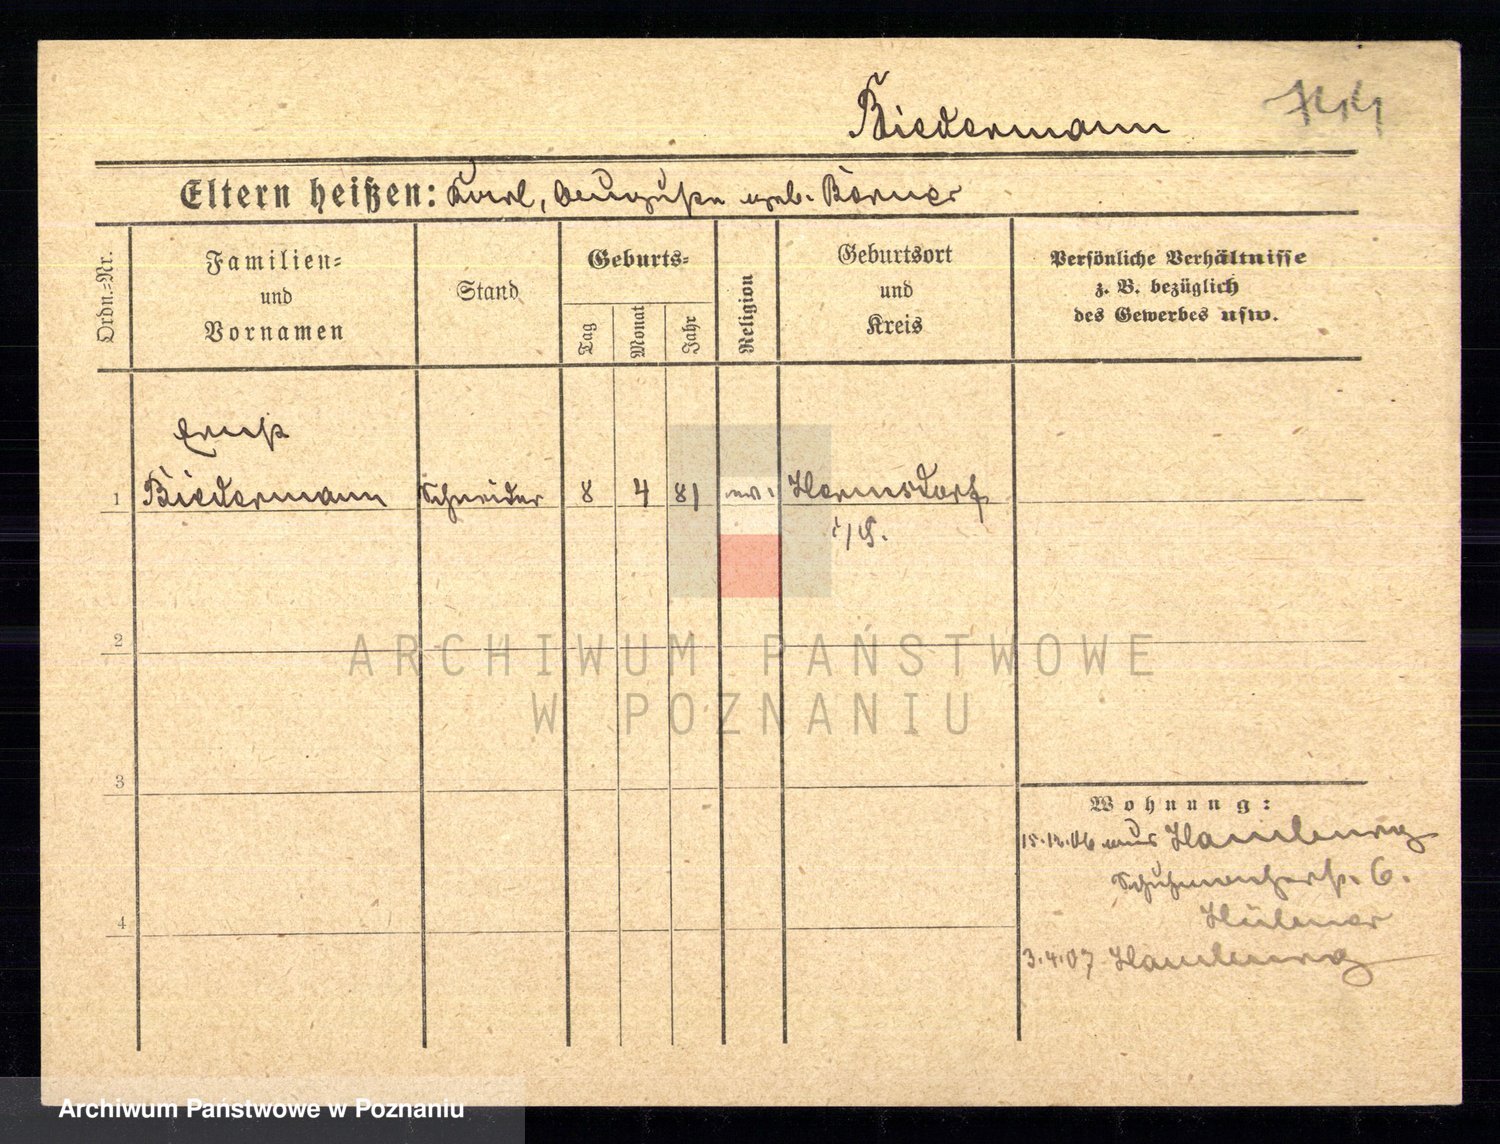 Biedermann
Eltern heißen: Karl, Auguste geb. Börner
Ordn.-Nr.
Familien-
und
Vornamen
Stand
Geburts-
Tag
Monat
Jahr
Religion
Geburtsort
und
Kreis
Persönliche Verhältnisse
z. B. bezüglich
des Gewerbes usw.
Ernst
1 Biedermann Schneider 8 4 81 ev. Hermsdorf
i/S.
2
3
4
Wohnung:
15.12.06 aus Hamburg
Schuhmacherst. 6.
3.4.07 Hamburg
ARCHIWUM PAŃSTWOWE
W POZNANIU
Archiwum Państwowe w Poznaniu